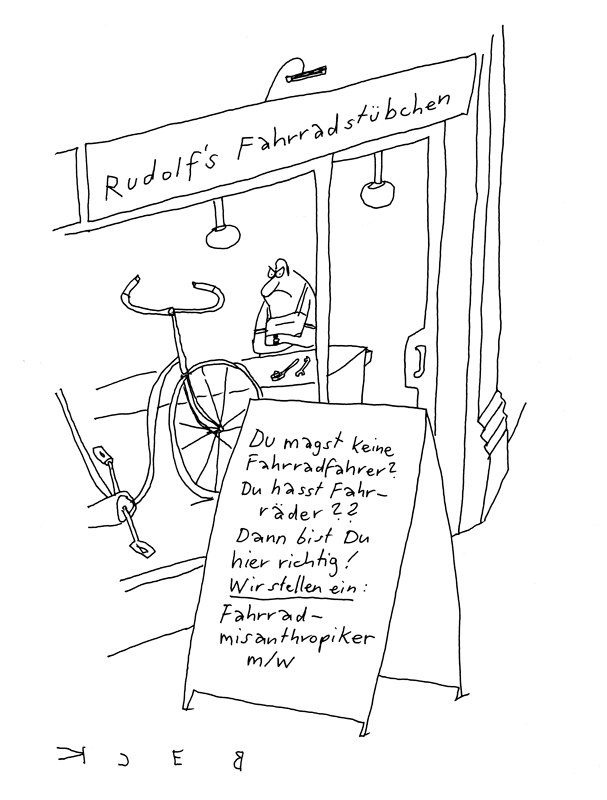 Rudolf's Fahrradstübchen
Du magst keine
Fahrradfahrer?
Du hasst Fahr-
räder ??
Dann bist Du
hier richtig!
Wir stellen ein:
Fahrrad-
misanthropiker
m/w
BECK